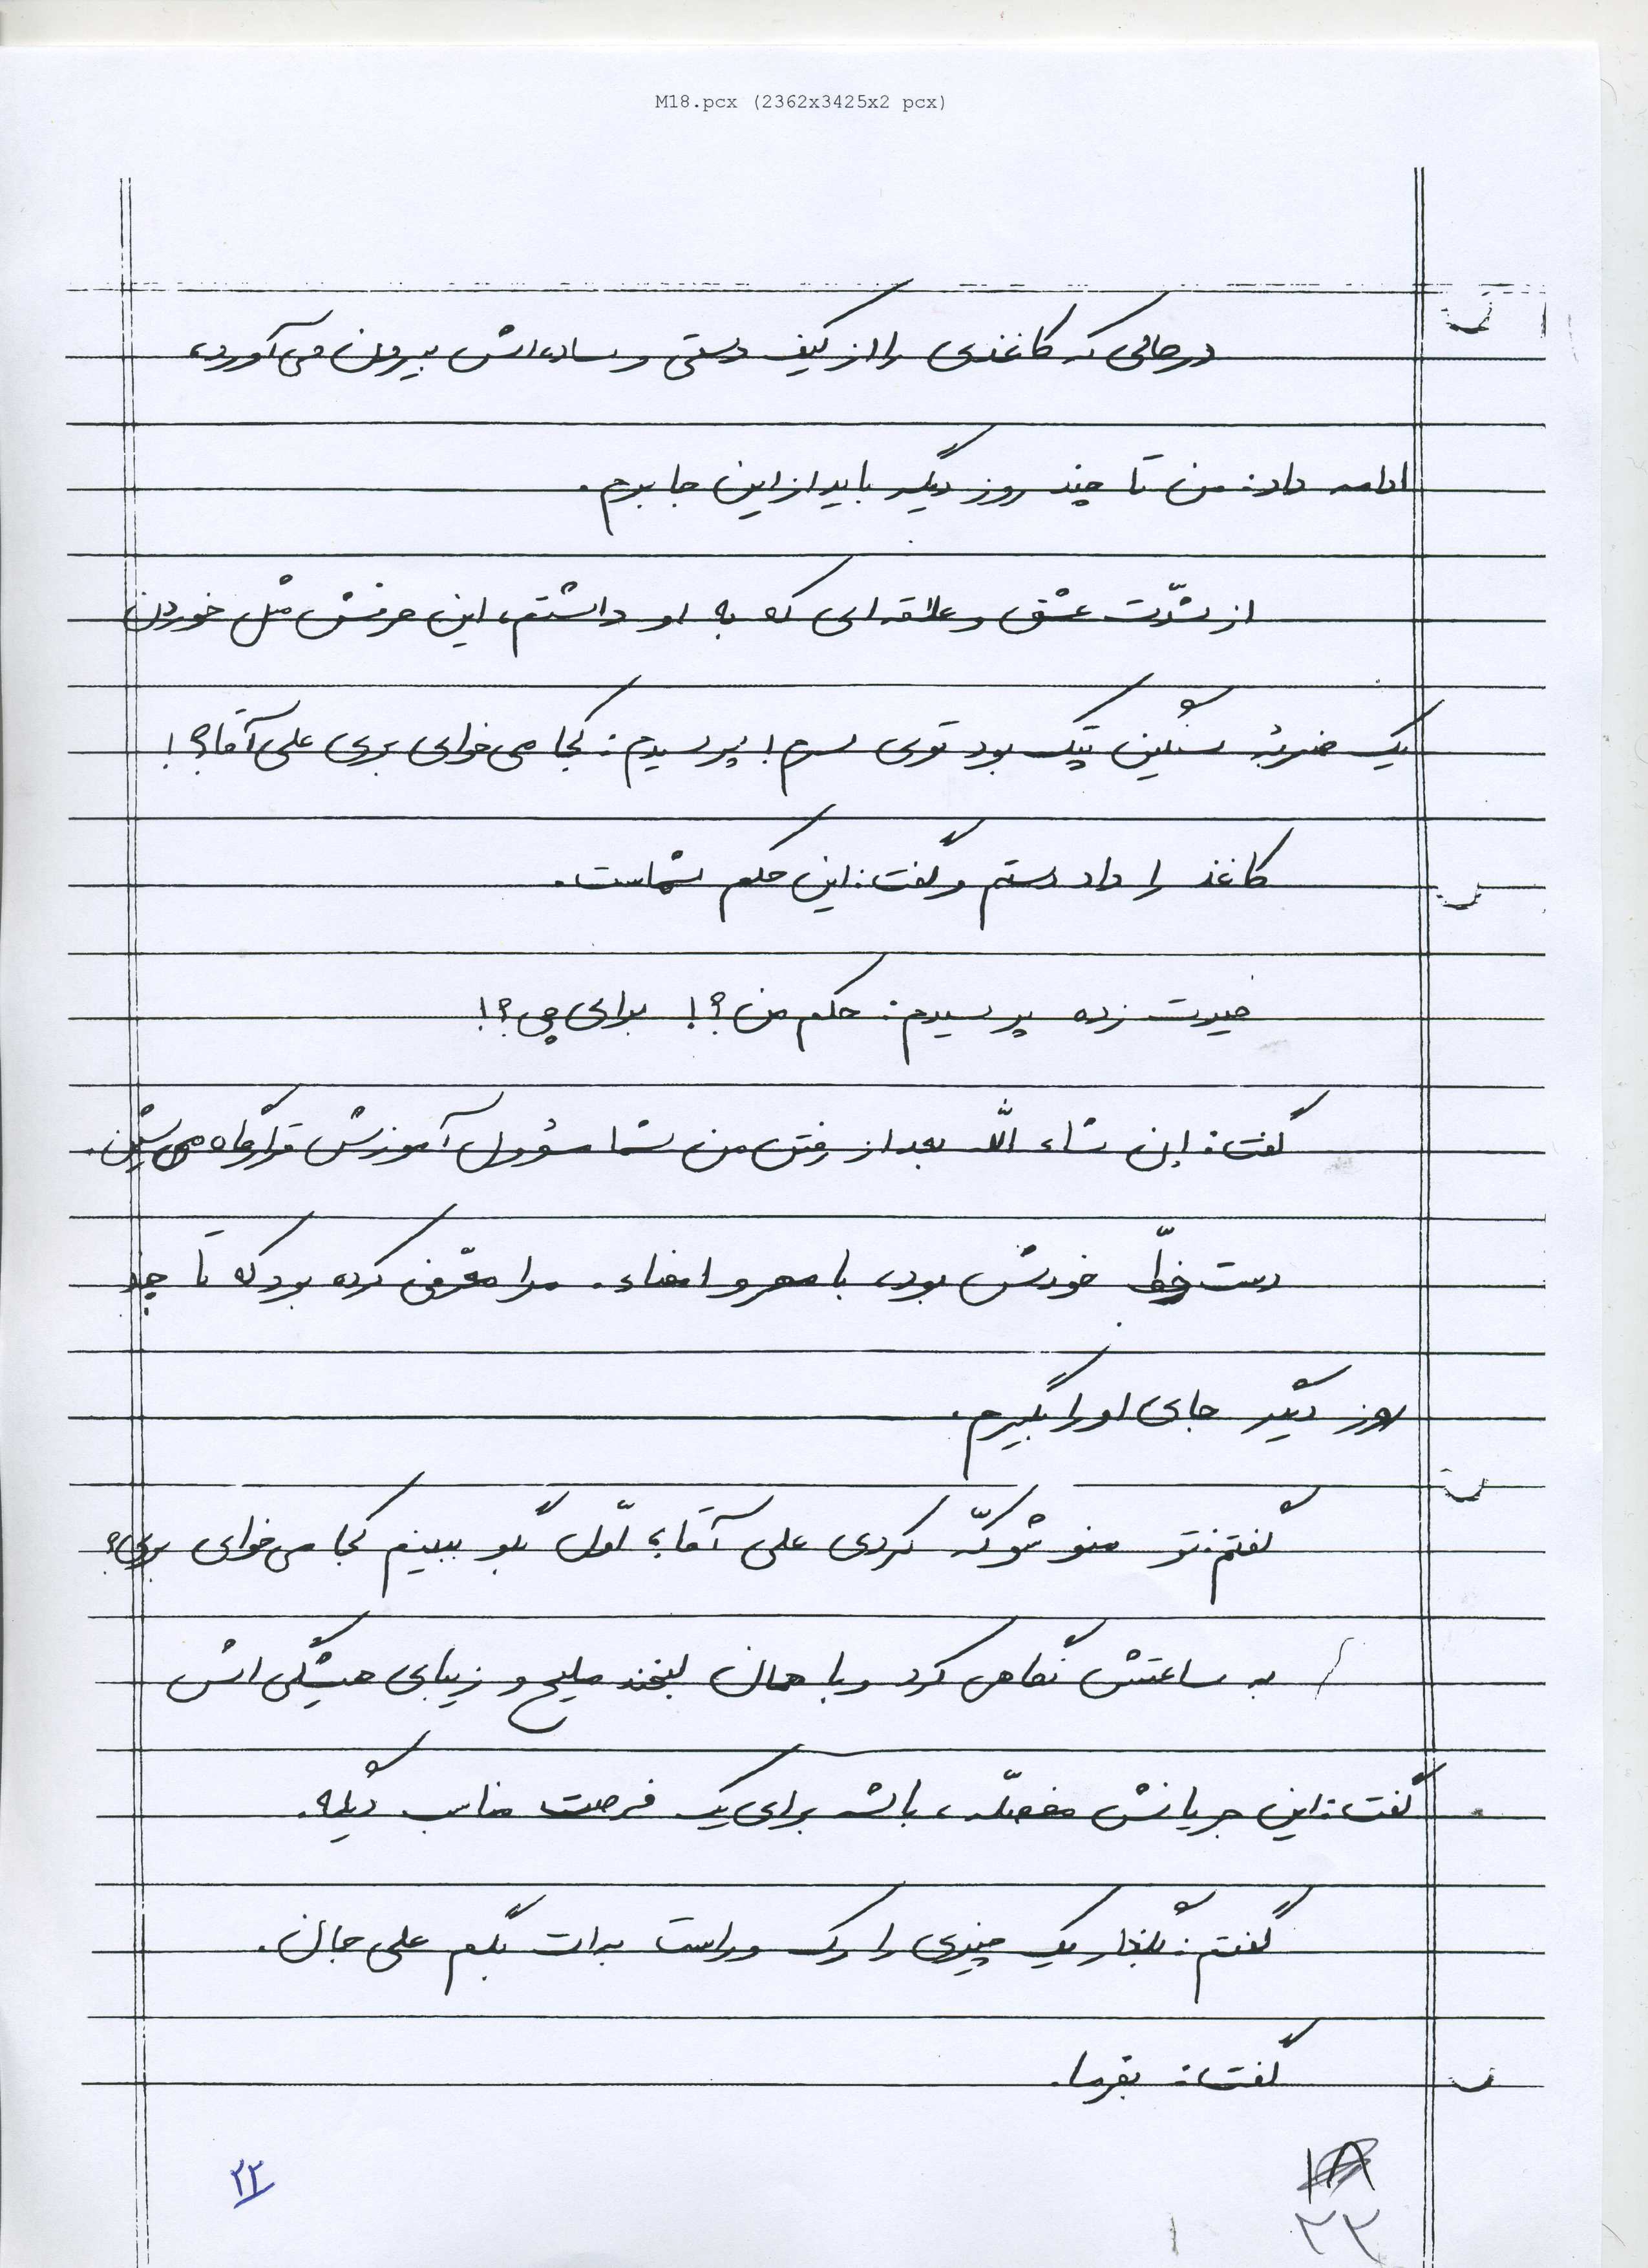 M18.pcx (2362x3425x2 pcx)
درحالی که کاغذی را از کیف دستی و ساده‌اش بیرون می‌آورد،
ادامه داد: من تا چند روز دیگه باید از این جا برم.
از شدّت عشق و علاقه‌ای که به او داشتم، این حرفش مثل خوردن
یک ضربهٔ سنگین پتک بود توی سرم! پرسیدم: کجا می‌خوای بری علی آقا؟!
کاغذ را داد دستم و گفت: این حکم شماست.
حیرت زده پرسیدم: حکم من؟! برای چی؟!
گفت: إن شاء اللّه بعد از رفتن من شما مسؤول آموزش قرارگاه می‌شین.
دست خطّ خودش بود، با مهر و امضاء. مرا معرّفی کرده بود که تا چند
روز دیگر جای او را بگیرم.
گفتم: تو منو شوکّه کردی علی آقا، اوّل بگو ببینم کجا می‌خوای بری؟
به ساعتش نگاهی کرد و با همان لبخند ملیح و زیبای همیشگی‌اش
گفت: این جریانش مفصّله، باشه برای یک فرصت مناسب دیگه.
گفتم: بگذار یک چیزی را رک و راست به‌ات بگم علی جان.
گفت: بفرما.
۲۲
۱۸
۲۲